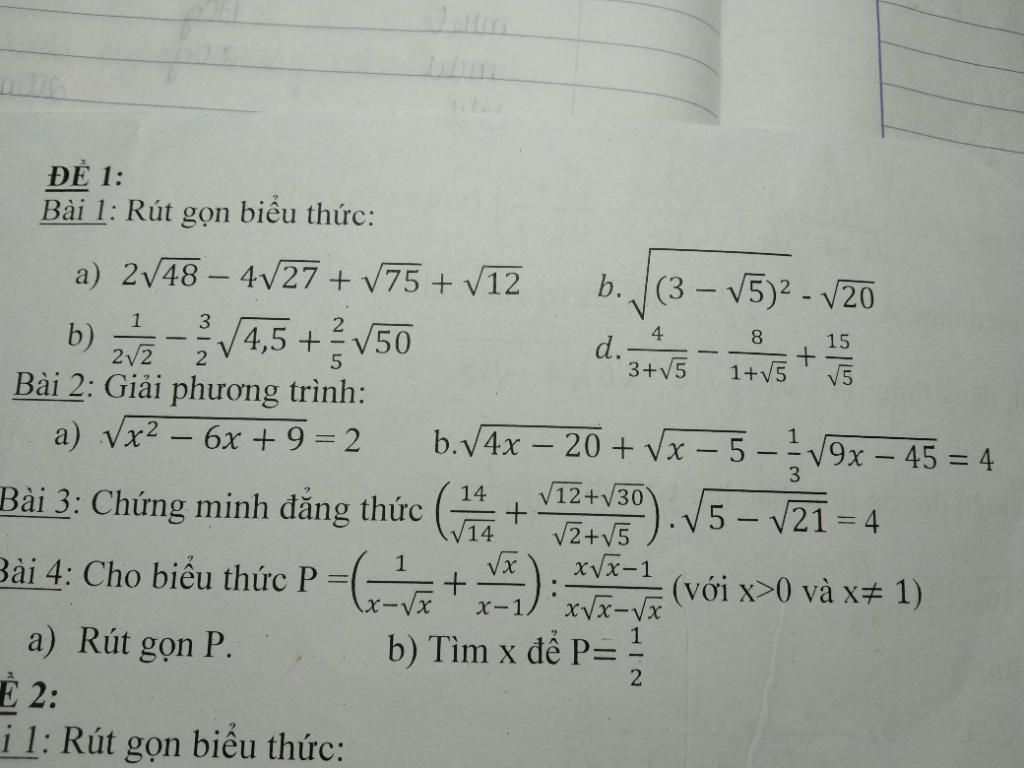 ĐỀ 1:
Bài 1: Rút gọn biểu thức:
a) 2√48 − 4√27 + √75 + √12 b. √((3 − √5)²) - √20
b) 1/(2√2) − 3/2 √4,5 + 2/5 √50 d. 4/(3+√5) − 8/(1+√5) + 15/√5
Bài 2: Giải phương trình:
a) √(x² − 6x + 9) = 2 b. √(4x − 20) + √(x − 5) − 1/3 √(9x − 45) = 4
Bài 3: Chứng minh đẳng thức (14/√14 + (√12+√30)/(√2+√5)) . √(5 − √21) = 4
Bài 4: Cho biểu thức P = (1/(x−√x) + √x/(x−1)) : (x√x−1)/(x√x−√x) (với x>0 và x≠ 1)
a) Rút gọn P. b) Tìm x để P= 1/2
Ề 2:
i 1: Rút gọn biểu thức: